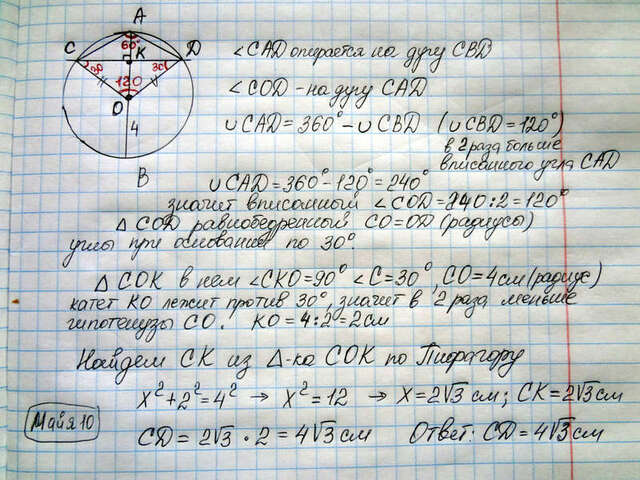 A
C 60° K D
30 30
120
O
4
B
∠CAD опирается на дугу CBD
∠COD - на дугу CAD
∪CAD = 360° - ∪CBD (∪CBD = 120°)
в 2 раза больше
вписанного угла CAD
∪CAD = 360° - 120° = 240°
значит вписанный ∠COD = 240 : 2 = 120°
△ COD равнобедренный CO = OD (радиусы)
углы при основании по 30°.
△ COK в нем ∠CKO = 90° ∠C = 30°, CO = 4 см (радиус)
катет KO лежит против 30°, значит в 2 раза меньше
гипотенузы CO. KO = 4 : 2 = 2 см
Найдем CK из △-ка COK по Пифагору
x² + 2² = 4² → x² = 12 → x = 2√3 см; CK = 2√3 см
Майя 10
CD = 2√3 · 2 = 4√3 см Ответ: CD = 4√3 см